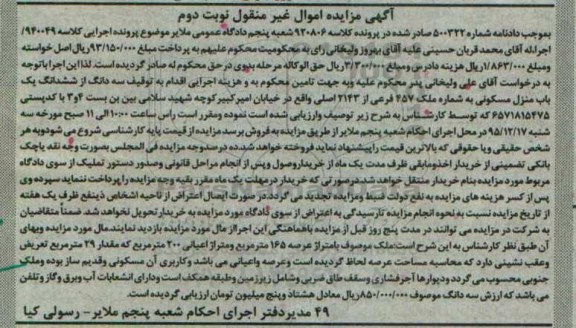 آگهی مزایده اموال غیر منقول نوبت دوم
بموجب دادنامه شماره ۵۰۰۳۲۲ صادر شده در پرونده کلاسه ۹۲۰۸۰۶ شعبه پنجم دادگاه عمومی ملایر موضوع پرونده اجرایی کلاسه ۹۴۰۰۴۹/
اجرا له آقای محمد قربان حسینی علیه آقای بهروز ولیخانی رای به محکومیت محکوم علیهم به پرداخت مبلغ ۹۳/۱۵۰/۰۰۰ریال اصل خواسته
ومبلغ ۱/۸۶۳/۰۰۰ریال هزینه دادرس ومبلغ ۳/۳۰۰/۰۰۰ریال حق الوکاله مرحله بدوی در حق محکوم له صادر گردیده است. لذا این اجرا با توجه
به درخواست آقای علی ولیخانی پدر محکوم علیه وبه جهت تامین محکوم به و هزینه اجرایی اقدام به توقیف سه دانگ از ششدانگ یک
باب منزل مسکونی به شماره ملک ۴۵۷ فرعی از ۲۱۴۳ اصلی واقع در خیابان امیرکبیر کوچه شهید سلامی بین بن بست ۴و۳ با کدپستی
۶۵۷۱۸۱۵۴۷۵ که توسط کارشناس به شرح زیر توصیف وارزیابی شده است نموده ومقرر است راس ساعت ۱۰:۰۰ الی ۱۱ صبح مورخه سه
شنبه ۹۵/۱۲/۱۷ در محل اجرای احکام شعبه پنجم ملایر از طریق مزایده به فروش برسد مزایده از قیمت پایه کارشناسی شروع می شود وبه هر
شخص حقیقی ویا حقوقی که بالاترین قیمت را پیشنهاد نماید فروخته خواهد شد. ده درصد وجه مزایده فی المجلس بصورت وجه نقد یا چک
بانکی تضمینی از خریدار اخذ ومابقی ظرف مدت یک ماه از خریدار وصول وپس از انجام مراحل قانونی وصدور دستور تملیک از سوی دادگاه
مربوط مورد مزایده بنام خریدار منتقل خواهد شد. در صورتی که خریدار در مهلت یک ماه مقرر بقیه وجه مزایده را پرداخت ننماید سپرده وی
پس از کسر هزینه های مزایده به نفع دولت ضبط ومزایده تجدید می گردد. در صورت ایصال اعتراض از ناحیه اشخاص ذینفع ظرف یک هفته
از تاریخ مزایده نسبت به نحوه انجام مزایده تا رسیدگی به اعتراض از سوی دادگاه مورد مزایده به خریدار تحویل نخواهد شد. ضمناً متقاضیان
به شرکت در مزایده می توانند در مدت پنج روز قبل از مزایده باهماهنگی این اجرا از مال مورد مزایده بازدید نمایند. مال مورد مزایده وبهای
آن طبق نظر کارشناس به این شرح است: ملک موصوف بامتراژ عرصه ۱۶۵ مترمربع ومتراژ اعیانی ۲۰۰ مترمربع که مقدار ۲۹ مترمربع تعریض
وعقب نشینی دارد که محاسبه مساحت عرصه لحاظ گردیده است وعرصه واعیانی می باشد وکاربری آن مسکونی وقدیم ساز بوده وملک
جنوبی محسوب می گردد ودیوارها آجر فشاری وسقف طاق ضربی وشامل زیرزمین وطبقه همکف است ودارای انشعابات آب وبرق وگاز وتلفن
می باشد که ارزش سه دانگ موصوف ۸۵۰/۰۰۰/۰۰۰ریال معادل هشتاد وپنج میلیون تومان ارزیابی گردیده است.
۴۹ مدیردفتر اجرای احکام شعبه پنجم ملایر- رسولی کیا